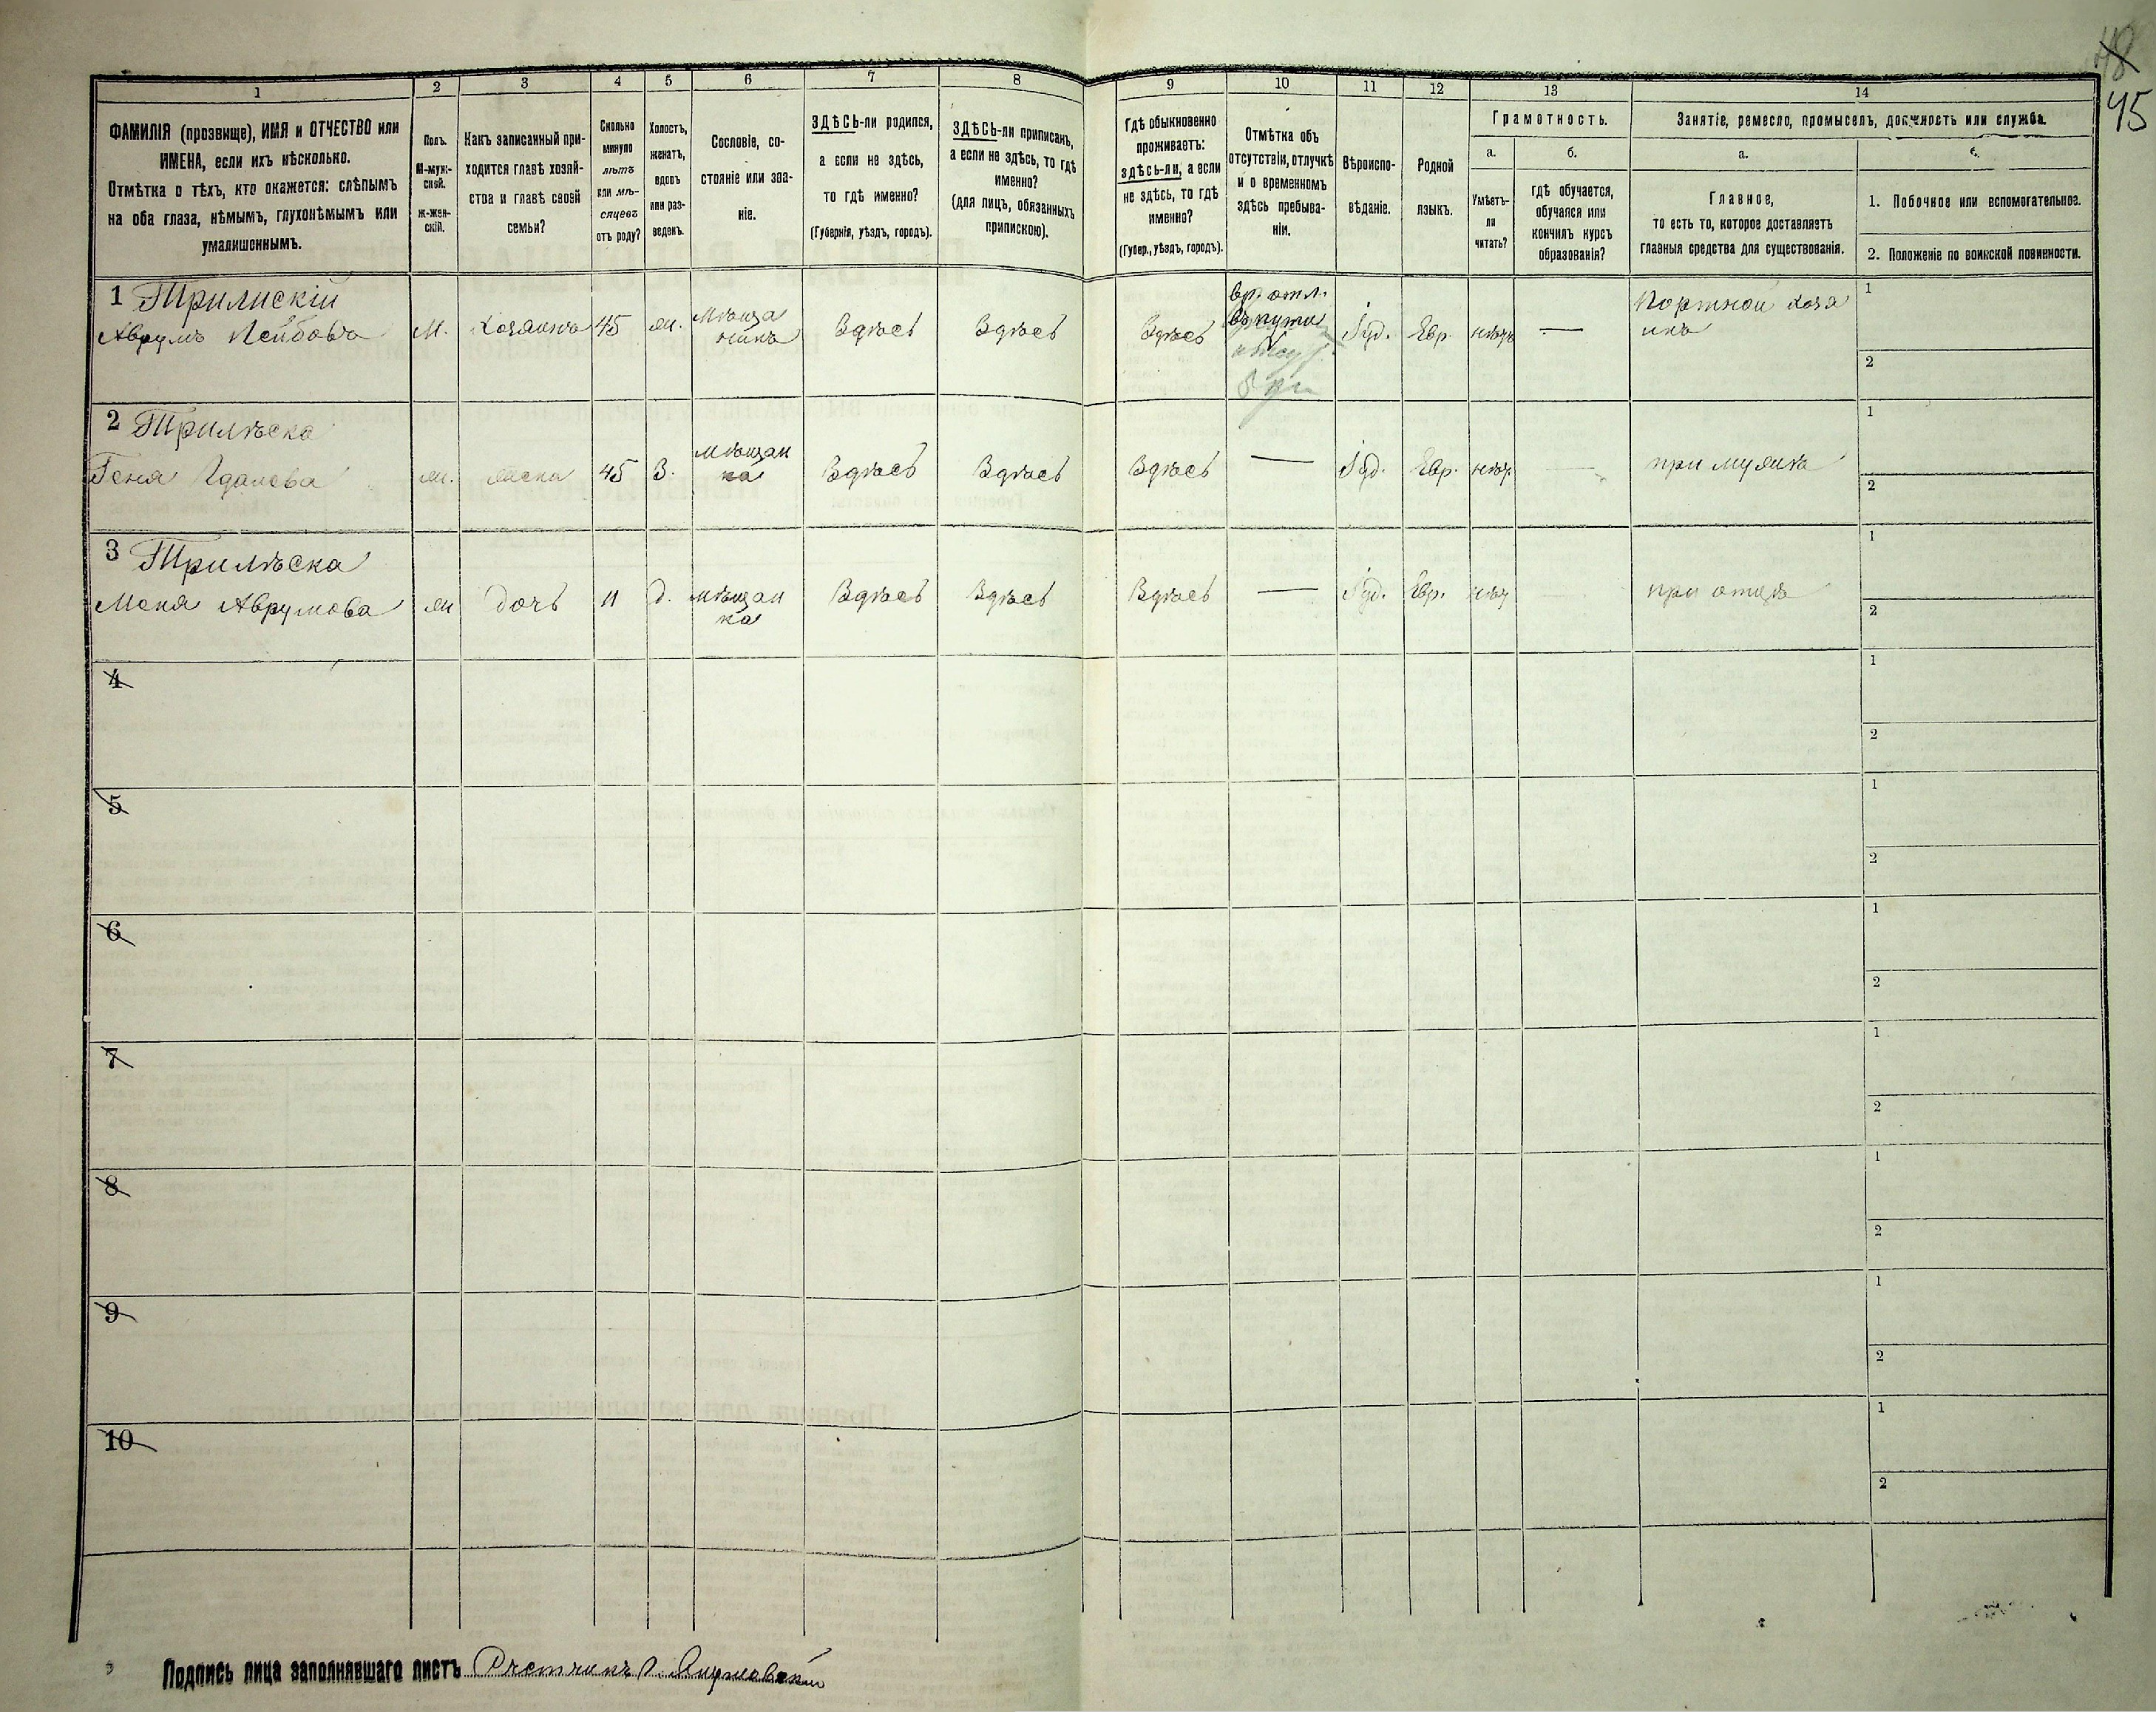 48
45
1
2
3
4
5
6
7
8
9
10
11
12
13
14
ФАМИЛІЯ (прозвище), ИМЯ и ОТЧЕСТВО или
ИМЕНА, если ихъ нѣсколько.
Отмѣтка о тѣхъ, кто окажется: слѣпымъ
на оба глаза, нѣмымъ, глухонѣмымъ или
умалишоннымъ.
Полъ.
М-муж-
ской.
Ж-жен-
скій.
Какъ записанный при-
ходится главѣ хозяй-
ства и главѣ своей
семьи?
Сколько
минуло
лѣтъ
или мѣ-
сяцевъ
отъ роду?
Холостъ,
женатъ,
вдовъ
или раз-
веденъ.
Сословіе, со-
стояніе или зва-
ніе.
ЗДѢСЬ-ли родился,
а если не здѣсь,
то гдѣ именно?
(Губернія, уѣздъ, городъ).
ЗДѢСЬ-ли приписанъ,
а если не здѣсь, то гдѣ
именно?
(для лицъ, обязанныхъ
припискою).
Гдѣ обыкновенно
проживаетъ:
здѣсь-ли, а если
не здѣсь, то гдѣ
именно?
(Губер., уѣздъ, городъ).
Отмѣтка объ
отсутствіи, отлучкѣ
и о временномъ
здѣсь пребыва-
ніи.
Вѣроиспо-
вѣданіе.
Родной
языкъ.
Грамотность.
а.
Умѣетъ-
ли
читать?
б.
гдѣ обучается,
обучался или
кончилъ курсъ
образованія?
Занятіе, ремесло, промыселъ, должность или служба.
а.
Главное,
то есть то, которое доставляетъ
главныя средства для существованія.
1. Побочное или вспомогательное.
2. Положеніе по воинской повинности.
1 Трилискій
Аврумъ Лейбовъ
М.
Хозяинъ
45
ж.
Мѣща
нинъ
Здѣсь
Здѣсь
Здѣсь
вр. отл.
въ пути
Iуд.
Евр.
нѣтъ
—
Портной хозя
инъ
1
2
2 Трилѣска
Геня Гдалева
ж.
жена
45
З.
Мѣщан
ка
Здѣсь
Здѣсь
Здѣсь
—
Iуд.
Евр.
нѣтъ
при мужѣ
1
2
3 Трилѣска
Меня Аврумова
ж
дочь
11
д.
мѣщан
ка
Здѣсь
Здѣсь
Здѣсь
—
Iуд.
Евр.
нѣтъ
при отцѣ
1
2
4
1
2
5
1
2
6
1
2
7
1
2
8
1
2
9
1
2
10
1
2
Подпись лица заполнявшаго листъ